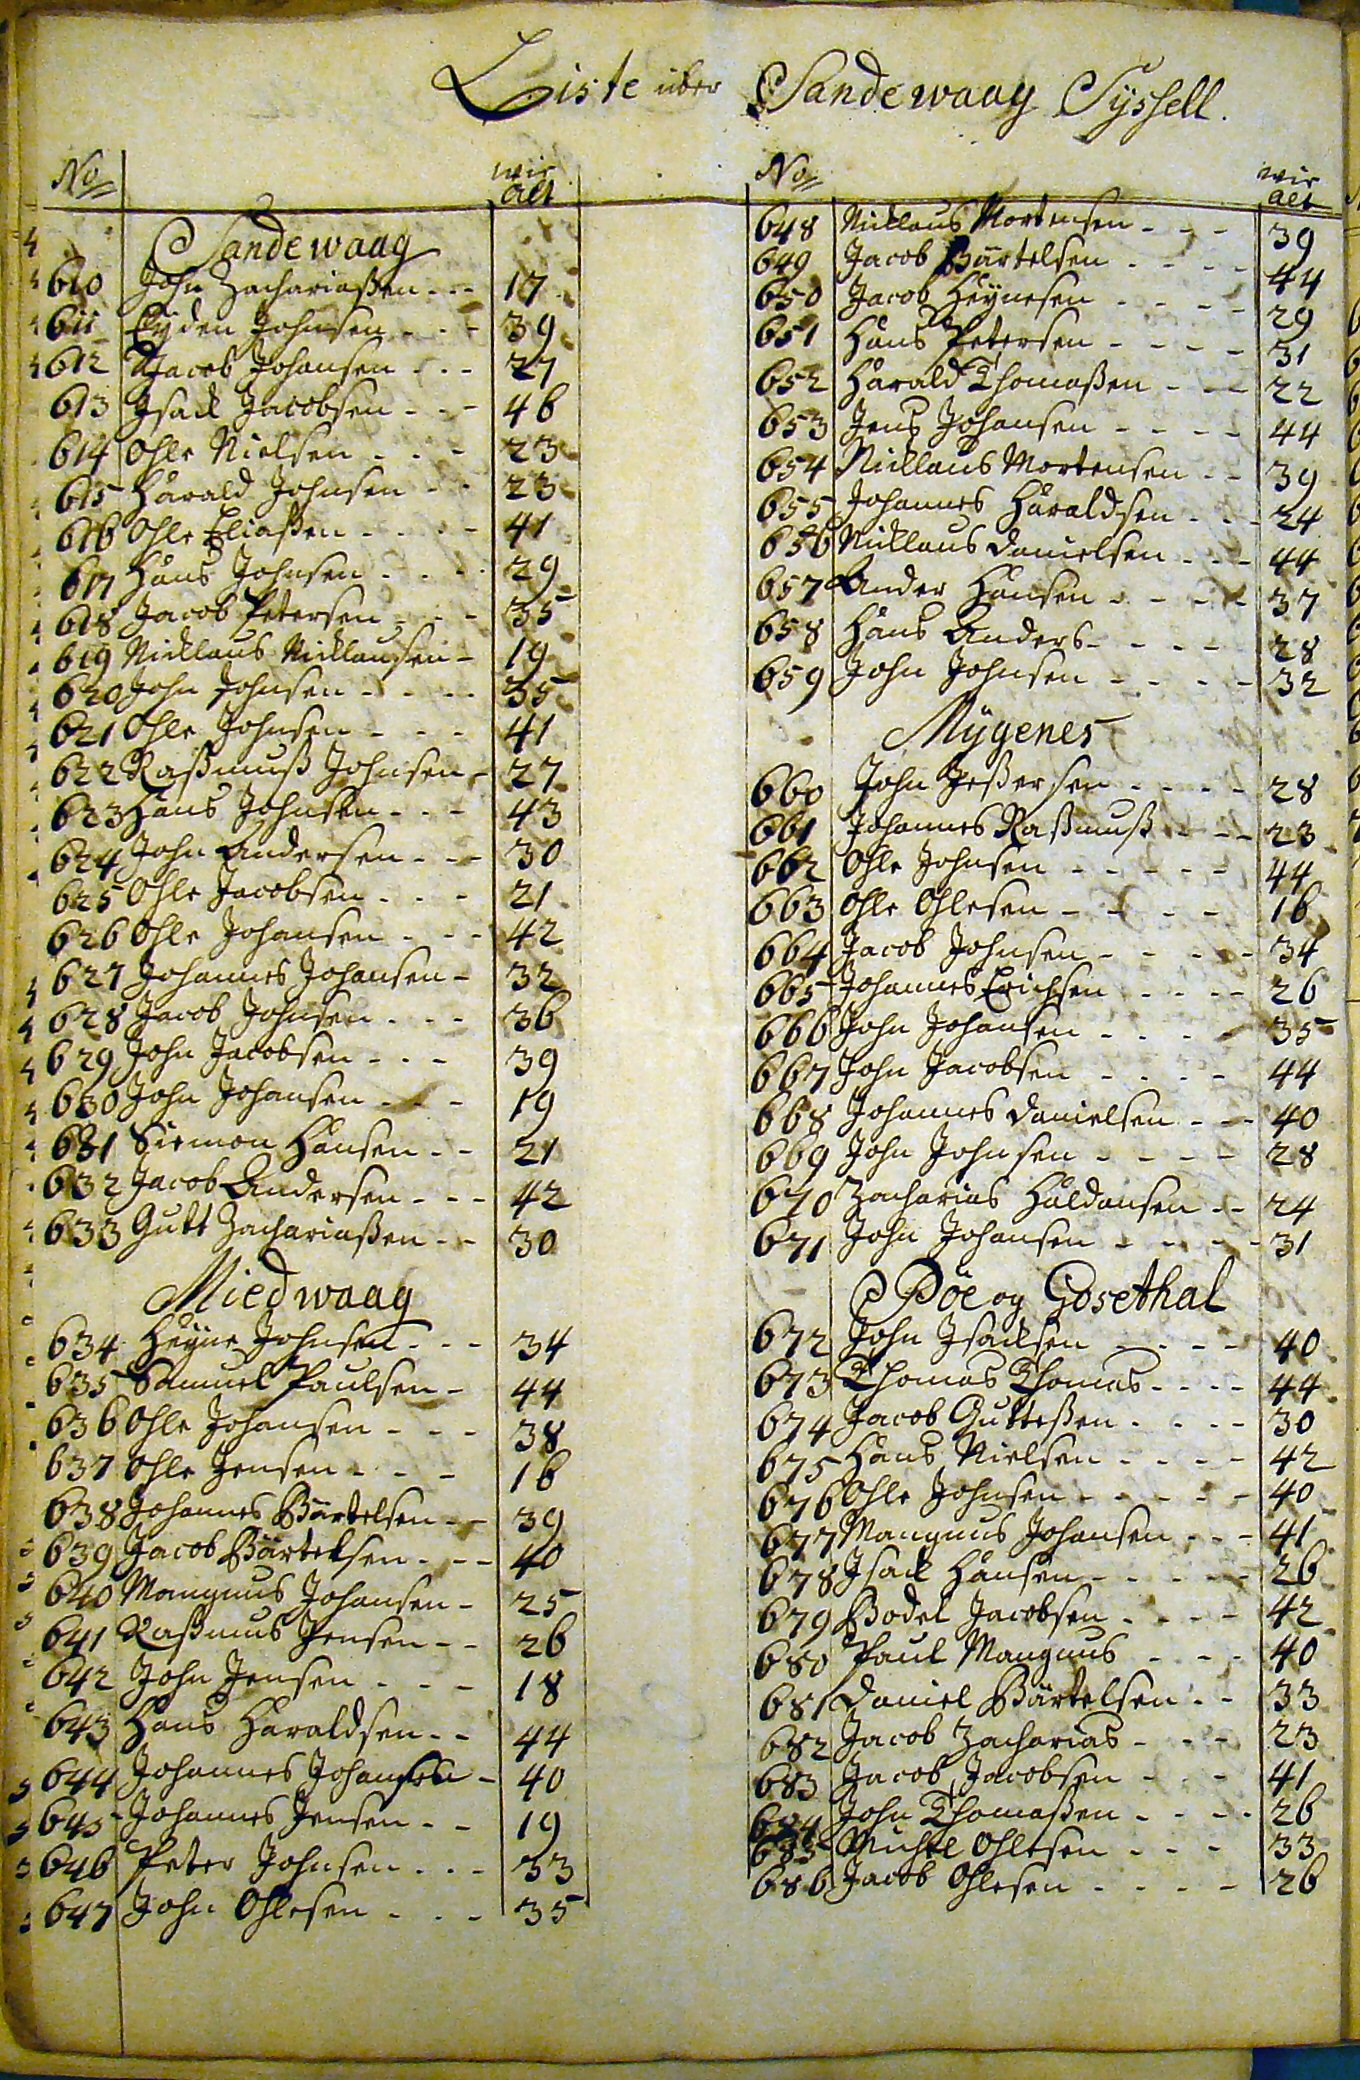 Liste über Sandewaag Sÿssell.
No wie alt
Sandewaag
610 John Zachariaßen - - - 17
611 Eÿden Johnsen - - - 39
612 Jacob Johansen - - - 27
613 Isack Jacobsen - - - 46
614 Ohle Nielsen - - - 23
615 Harald Johnsen - - 23
616 Ohle Eliaßen - - - - 41
617 Hans Johnsen - - - - 29
618 Jacob Petersen - - - 35
619 Nicklaus Nicklausen - 19
620 John Johnsen - - - - 35
621 Ohle Johnsen - - - 41
622 Raßmuß Johnsen - 27
623 Hans Johnsen - - - 43
624 John Andersen - - - 30
625 Ohle Jacobsen - - - 21
626 Ohle Johansen - - - 42
627 Johannes Johansen - 32
628 Jacob Johnsen - - - 36
629 John Jacobsen - - - 39
630 John Johansen - - - 19
631 Siemon Hansen - - 21
632 Jacob Andersen - - - 42
633 Gutt Zachariaßen - - 30
Miedwaag
634 Heÿne Johnsen - - - 34
635 Samuel Paulsen - 44
636 Ohle Johansen - - - 38
637 Ohle Jensen - - - 16
638 Johannes Bärtelsen - - 39
639 Jacob Bärtelsen - - - 40
640 Mangnus Johansen - 25
641 Raßmus Jensen - - 26
642 John Jensen - - - 18
643 Hans Haraldsen - - 44
644 Johannes Johansen - 40
645 Johannes Jensen - - 19
646 Peter Johnsen - - - 33
647 John Ohlesen - - - 35
No wie alt
648 Nicklaus Mortensen - - - 39
649 Jacob Bärtelsen - - - - 44
650 Jacob Heÿnesen - - - - 29
651 Hans Petersen - - - - 31
652 Harald Thomaßen - - - 22
653 Jens Johansen - - - - 44
654 Nicklaus Mortensen - - 39
655 Johannes Haraldsen - - - 24
656 Nicklaus Danielsen - - - 44
657 Ander Hansen - - - - 37
658 Hans Anders - - - - 28
659 John Johnsen - - - - 32
Mÿgenes
660 John Jeßersen - - - - 28
661 Johannes Raßmuß - - - 23
662 Ohle Johnsen - - - - - 44
663 Ohle Ohlesen - - - - 16
664 Jacob Johnsen - - - - - 34
665 Johannes Erichsen - - - - 26
666 John Johansen - - - - 35
667 John Jacobsen - - - - 44
668 Johannes Danielsen - - - 40
669 John Johnsen - - - - 28
670 Zacharias Haldansen - - 24
671 John Johansen - - - - - 31
Böe og Gosethal
672 John Isacksen - - - - 40
673 Thomas Thomas - - - - 44
674 Jacob Gutteßen - - - - 30
675 Hans Nielsen - - - - 42
676 Ohle Johnsen - - - - - 40
677 Mangnus Johansen - - - 41
678 Isack Hansen - - - - - 26
679 Bodel Jacobsen - - - - 42
680 Paul Mangnus - - - - 40
681 Daniel Bärtelsen - - 33
682 Jacob Zacharias - - - 23
683 Jacob Jacobsen - - - 41
684 John Thomaßen - - - - 26
685 Michel Ohlesen - - - 33
686 Jacob Ohlesen - - - - 26